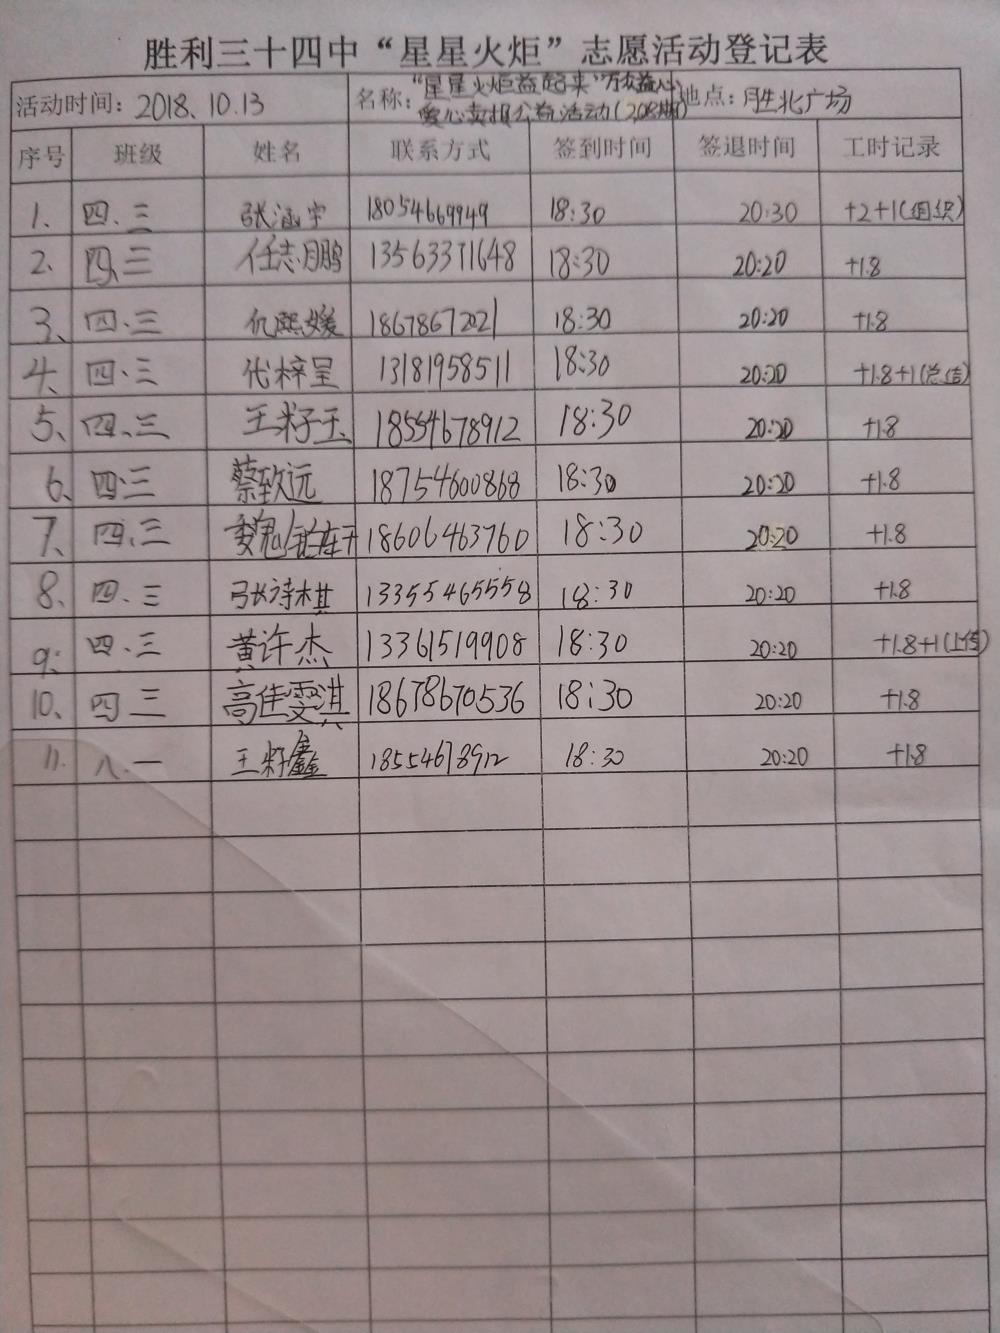 胜利三十四中“星星火炬”志愿活动登记表
活动时间：2018.10.13 名称：“星星火炬益起来”万众益心 地点：胜北广场
爱心卖报公益活动（208期）
序号 班级 姓名 联系方式 签到时间 签退时间 工时记录
1. 四.三 张涵宇 18054669949 18:30 20:30 +2+1(组织)
2. 四.三 任志鹏 13563371648 18:30 20:20 +1.8
3、 四.三 仇熙媛 18678672021 18:30 20:20 +1.8
4、 四.三 代梓呈 13181958511 18:30 20:20 +1.8+1(总结)
5、 四.三 王籽玉 18554678912 18:30 20:20 +1.8
6、 四.三 蔡致远 18754600868 18:30 20:20 +1.8
7、 四.三 魏 18606463760 18:30 20:20 +1.8
8、 四.三 张诗棋 13355465558 18:30 20:20 +1.8
9. 四.三 黄许杰 13361519908 18:30 20:20 +1.8+1(上传)
10、 四三 高佳雯淇 18678670536 18:30 20:20 +1.8
11. 八.一 王籽鑫 18554678912 18:30 20:20 +1.8